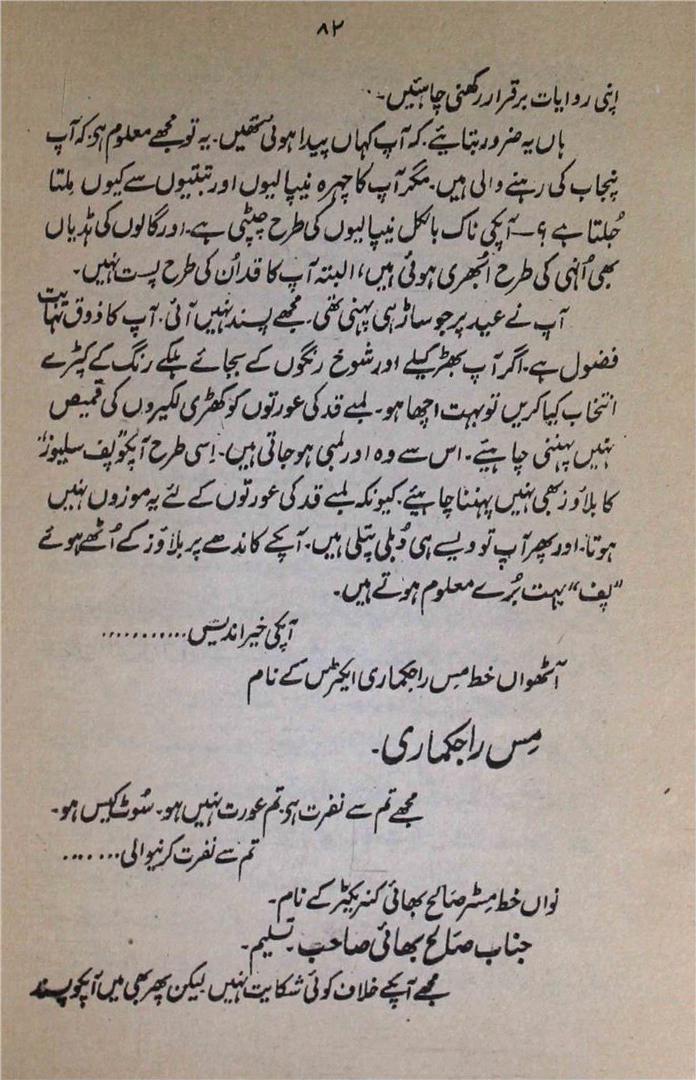 ۸۲
اپنی روایات برقرار رکھنی چاہئیں۔
ہاں یہ ضرور بتایئے۔ کہ آپ کہاں پیدا ہوئی تھیں۔ یہ تو مجھے معلوم ہی کہ آپ
پنجاب کی رہنے والی ہیں۔ مگر آپ کا چہرہ نیپالیوں اور تبتیوں سے کیوں مِلتا
جُلتا ہے؟۔ آپکی ناک بالکل نیپالیوں کی طرح چپٹی ہے۔ اور گالوں کی ہڈیاں
بھی اُنہی کی طرح اُبھری ہوئی ہیں، البتہ آپ کا قد اُن کی طرح پست نہیں۔
آپ نے عید پر جو ساڑھی پہنی تھی۔ مجھے پسند نہیں آئی۔ آپ کا ذوق نہایت
فضول ہے۔ اگر آپ بھڑکیلے اور شوخ رنگوں کے بجائے ہلکے رنگ کے کپڑے
انتخاب کیا کریں تو بہت اچھا ہو۔ لمبے قد کی عورتوں کو کھڑی لکیروں کی قمیص
نہیں پہننی چاہیئے۔ اس سے وہ اور لمبی ہو جاتی ہیں۔ اِسی طرح آپکو ”پف سلیوز“
کا بلاؤز بھی نہیں پہننا چاہیئے۔ کیونکہ لمبے قد کی عورتوں کے لئے یہ موزوں نہیں
ہوتا۔ اور پھر آپ تو ویسے ہی دُبلی پتلی ہیں۔ آپکے کاندھے پر بلاؤز کے اُٹھے ہوئے
”پف“ بہت بُرے معلوم ہوتے ہیں۔
آپکی خیر اندیش...........
آٹھواں خط مِس راجکماری ایکٹرس کے نام
مِس راجکماری۔
مجھے تم سے نفرت ہی۔ تم عورت نہیں ہو۔ سُوٹ کیس ہو۔
تم سے نفرت کرنیوالی.......
نواں خط مِسٹر صالح بھائی کنٹریکٹر کے نام۔
جناب صالح بھائی صاحب۔ تسلیم۔
مجھے آپکے خلاف کوئی شکایت نہیں لیکن پھر بھی میں آپکو پسند